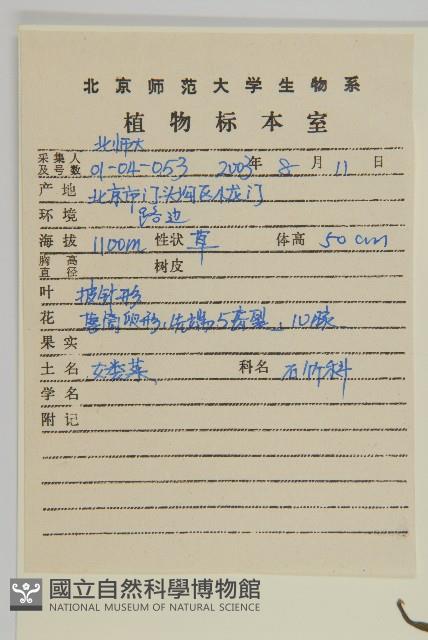 北京师范大学生物系
植物标本室
北师大
采集人及号数 01-04-053 2003年 8 月 11 日
产地 北京市门头沟区小龙门
环境 路边
海拔 1100m 性状 草 体高 50 cm
胸高直径 树皮
叶 披针形
花 萼筒卵形,先端5齿裂, 10脉
果实
土名 女娄菜 科名 石竹科
学名
附记
國立自然科學博物館
NATIONAL MUSEUM OF NATURAL SCIENCE